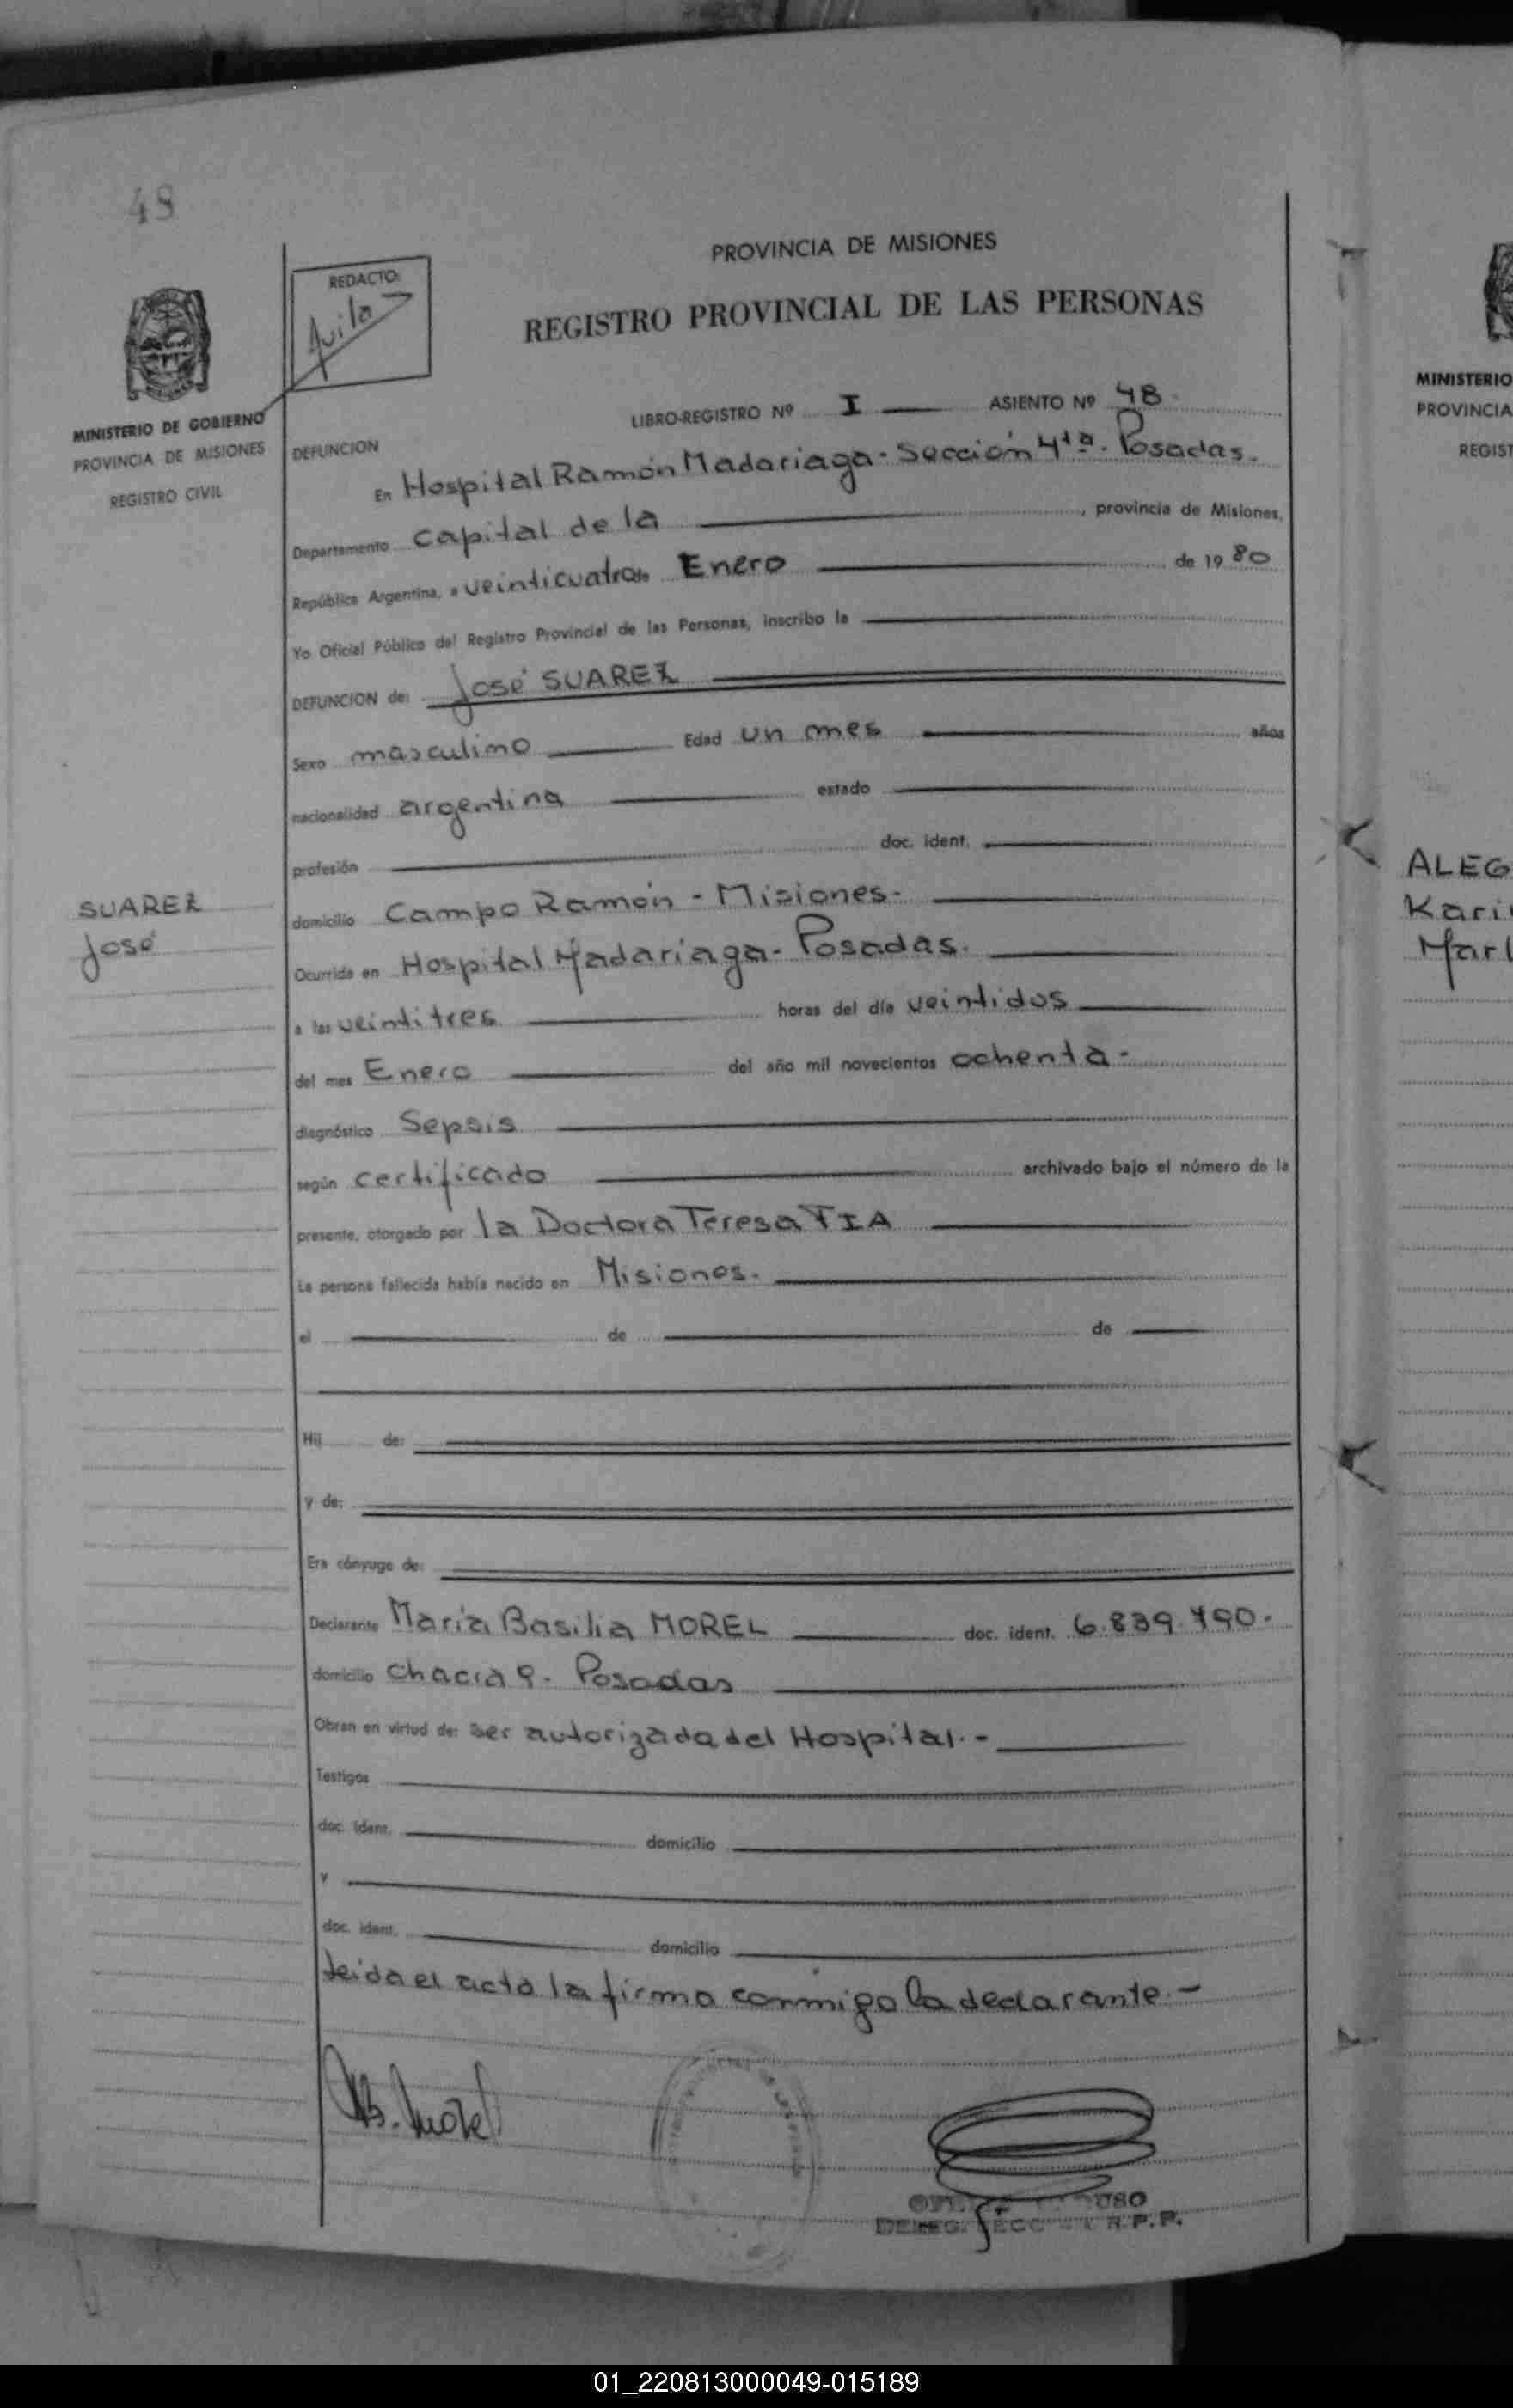 48
PROVINCIA DE MISIONES
REDACTO:
Avila
REGISTRO PROVINCIAL DE LAS PERSONAS
MINISTERIO DE GOBIERNO
PROVINCIA DE MISIONES
REGISTRO CIVIL
LIBRO-REGISTRO Nº I ASIENTO Nº 48
DEFUNCION
En Hospital Ramón Madariaga - Sección 4ta. Posadas.
Departamento Capital de la , provincia de Misiones,
República Argentina, a veinticuatro de Enero de 19 80
Yo Oficial Público del Registro Provincial de las Personas, inscribo la
DEFUNCION de: José SUAREZ
Sexo masculino Edad un mes años
nacionalidad argentina estado
profesión doc. ident.
SUAREZ
José
domicilio Campo Ramón - Misiones.
Ocurrida en Hospital Madariaga - Posadas.
a las veintitres horas del día veintidos
del mes Enero del año mil novecientos ochenta -
diagnóstico Sepsis
según certificado archivado bajo el número de la
presente, otorgado por la Doctora Teresa FIA
La persona fallecida había nacido en Misiones.
el de de
Hij de:
y de:
Era cónyuge de:
Declarante María Basilia MOREL doc. ident. 6.839.790.
domicilio chacra 9. Posadas
Obran en virtud de: ser autorizada del Hospital. -
Testigos
doc. ident. domicilio
y
doc. ident. domicilio
leida el acta la firma conmigo la declarante. -
B. Morel
R.P.P.
MINISTERIO
PROVINCIA
REGIST
ALEG
Kari
Mar
01_220813000049-015189